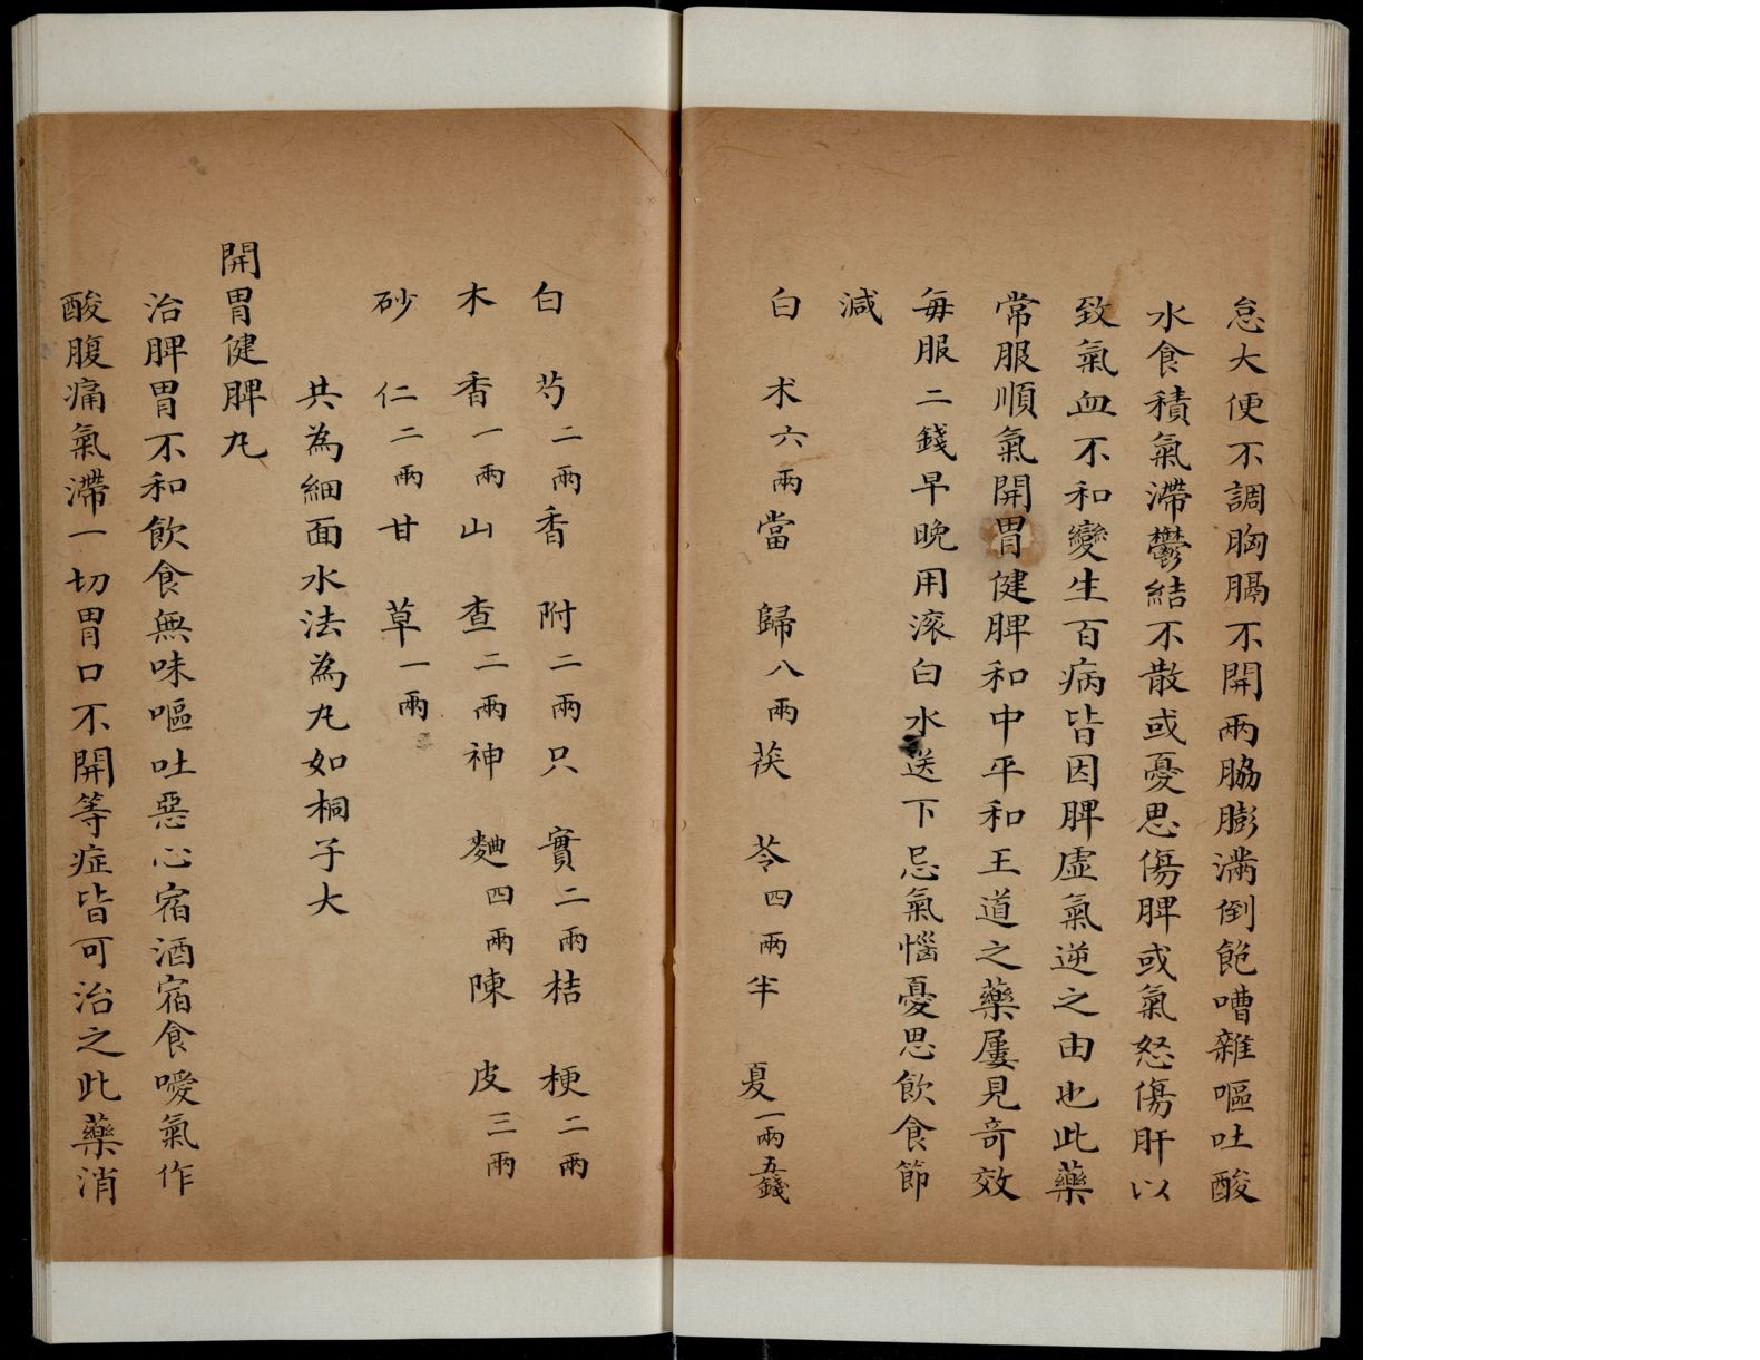 怠大便不調胸膈不開兩脇膨滿倒飽嘈雜嘔吐酸
水食積氣滯鬱結不散或憂思傷脾或氣怒傷肝以
致氣血不和變生百病皆因脾虛氣逆之由也此藥
常服順氣開胃健脾和中平和王道之藥屢見奇效
每服二錢早晚用滚白水送下忌氣惱憂思飲食節
減
白 朮六兩當 歸八兩茯 苓四兩半 夏一兩五錢
白 芍二兩香 附二兩只 實二兩桔 梗二兩
木 香一兩山 查二兩神 麯四兩陳 皮三兩
砂 仁二兩甘 草一兩
共為細面水法為丸如桐子大
開胃健脾丸
治脾胃不和飲食無味嘔吐惡心宿酒宿食噯氣作
酸腹痛氣滯一切胃口不開等症皆可治之此藥消